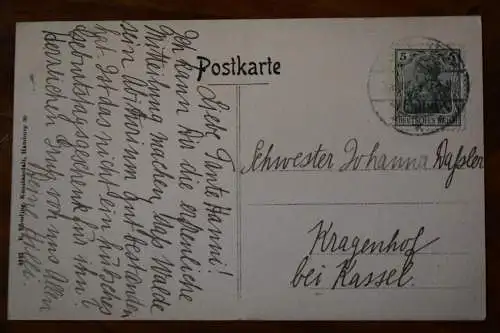 Postkarte
Liebe Tante Hanni!
Ich kann Dir die erfreuliche
Mitteilung machen, dass Walde
sein Abitorium gut bestanden
hat. Ist das nicht ein hübsches
Geburtstagsgeschenk für ihn?
Herzlichen Gruß von uns Allen
Deine Hilli.
5 5
DEUTSCHES REICH
Schwester Johanna Daßler
Kragenhof
bei Kassel.
Kunstanstalt, Hamburg